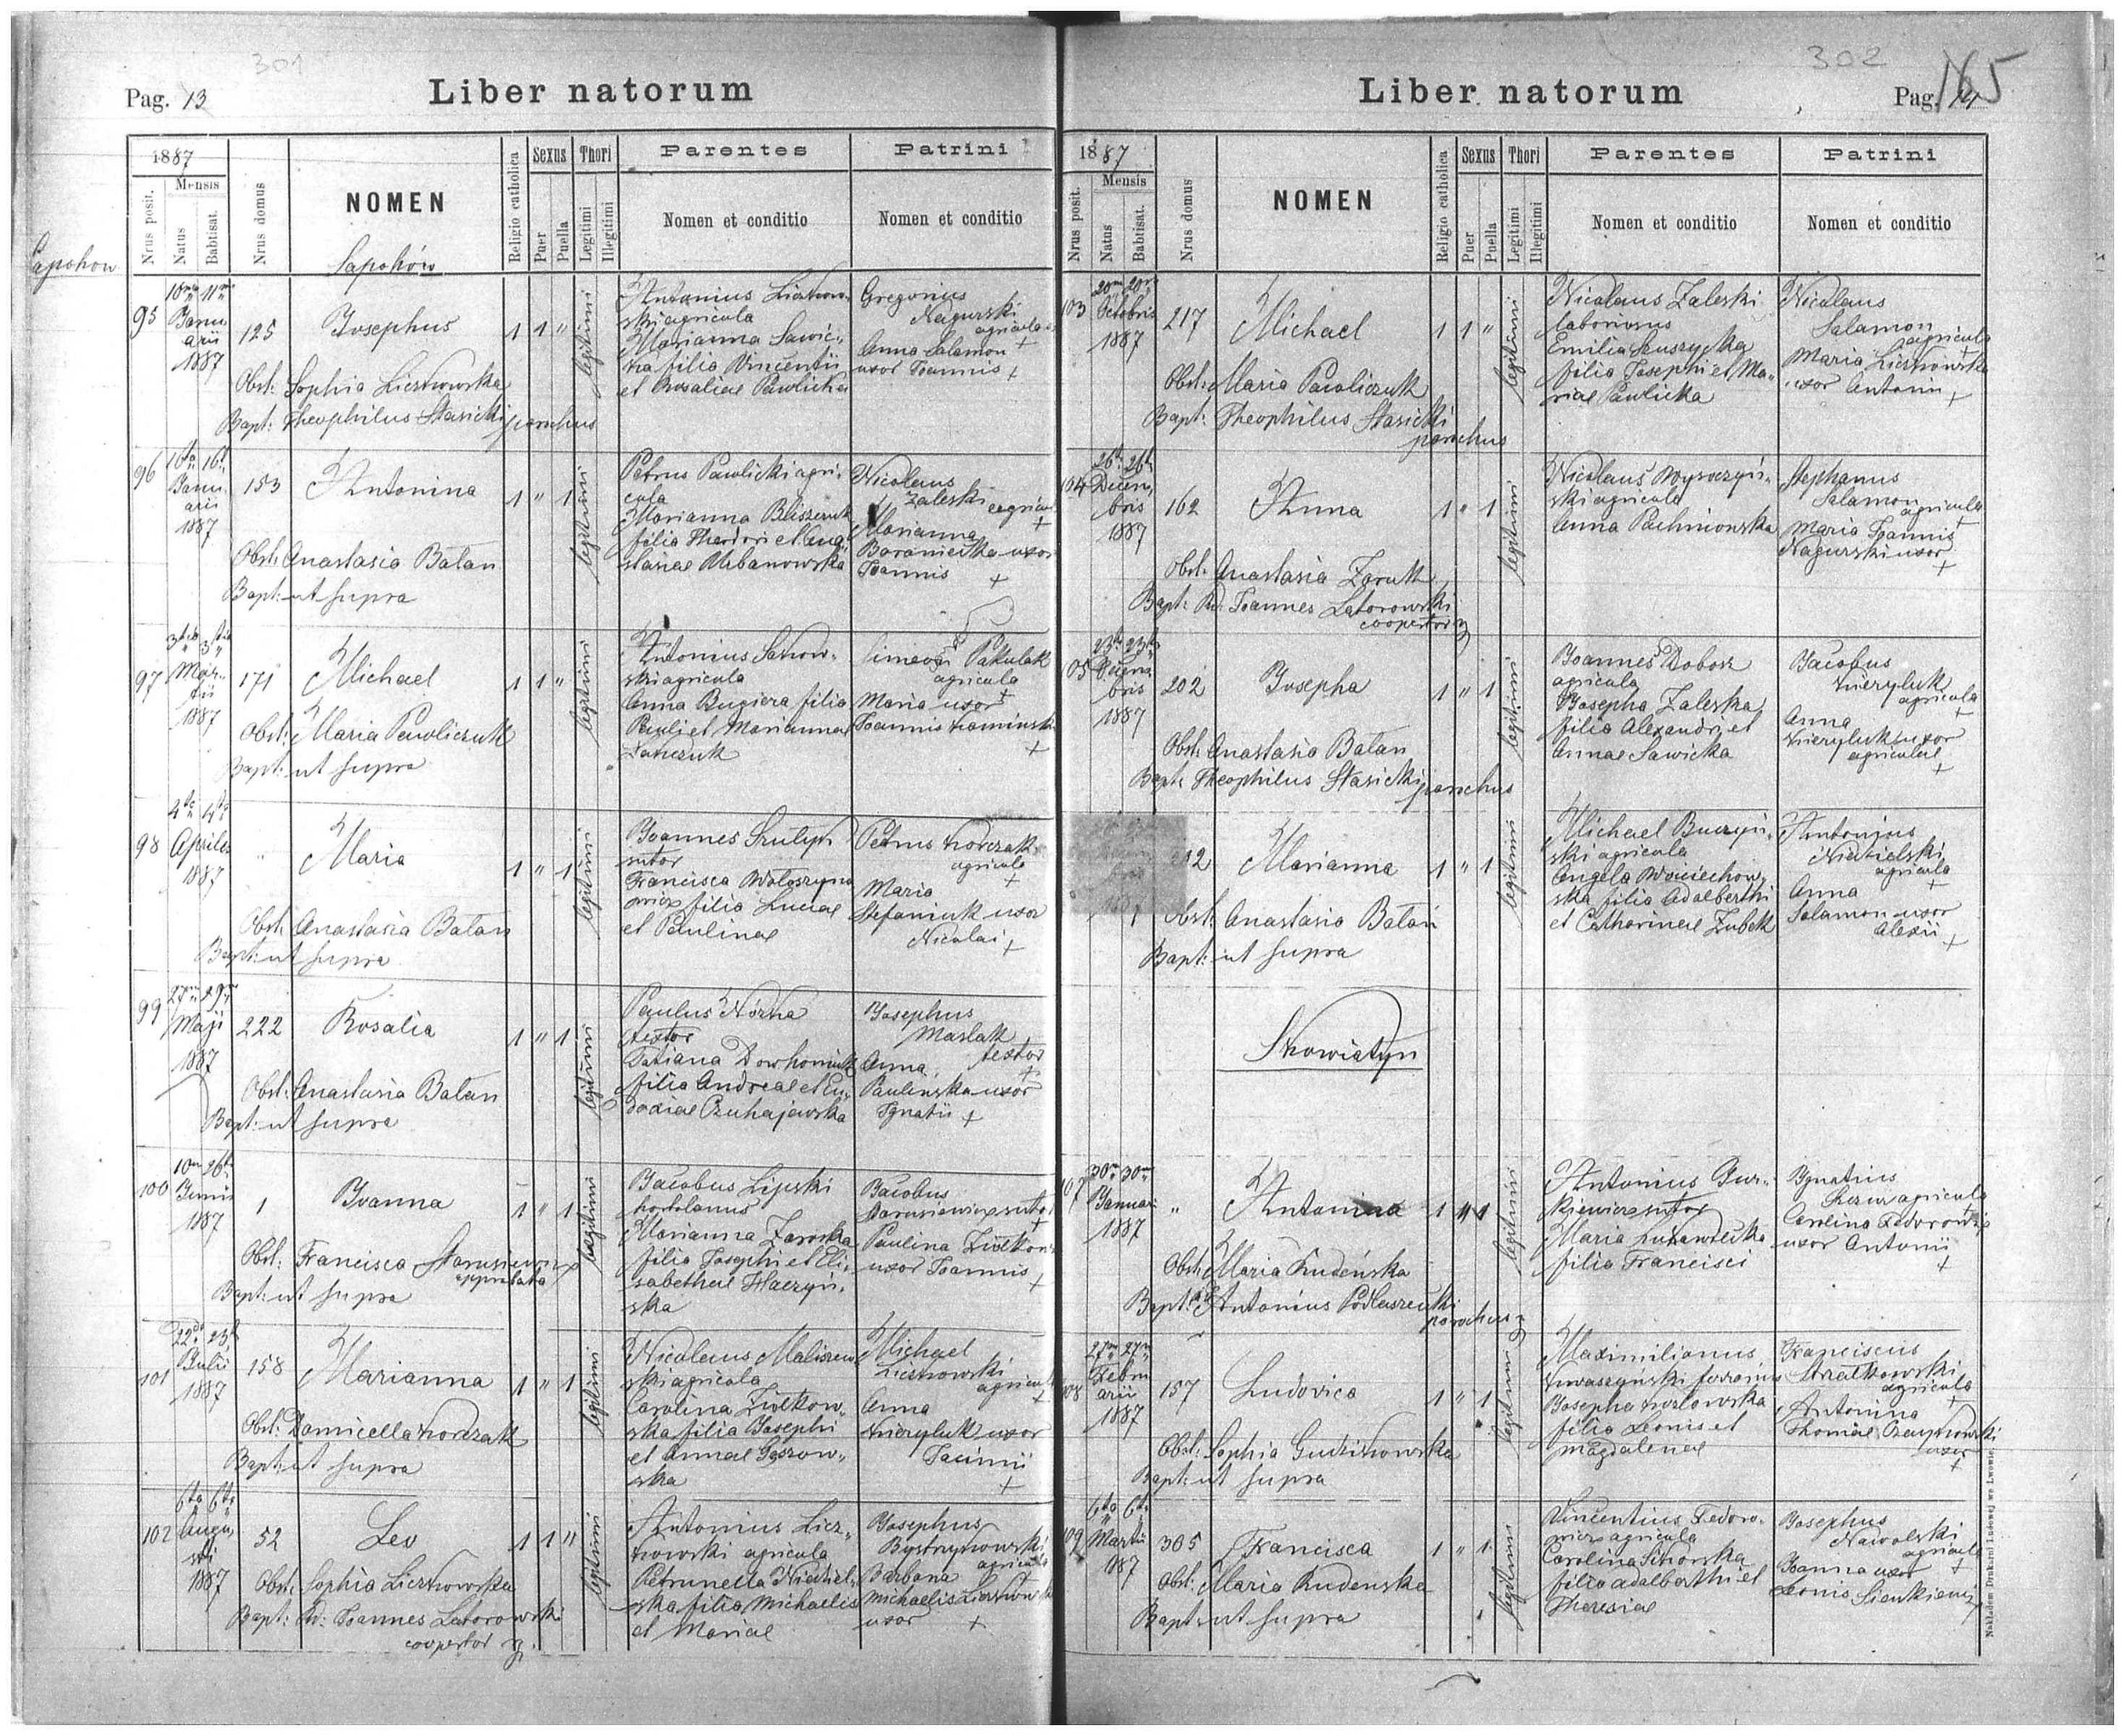 301
Pag. 13
Liber natorum
1887
Nrus posit.
Mensis
Natus
Babtisat.
Nrus domus
NOMEN
Religio catholica
Sexus
Puer
Puella
Thori
Legitimi
Illegitimi
Parentes
Nomen et conditio
Patrini
Nomen et conditio
Sapohów
Sapohow
95
10ma 11ma
Januarii
1887
125
Josephus
1 1 "
legitimi
Antonius Liczkow-
ski agricola
Marianna Sawic-
ka filia Vincentii
et Rosaliae Pawlicka
Gregorius
Nagurski
agricola
Anna Salamon +
uxor Joannis +
Obst: Sophia Liczkowska
Bapt: Theophilus Stasicki parochus
96
16ta 16ta
Januarii
1887
153
Antonina
1 " 1
legitimi
Petrus Pawlicki agri-
cola
Marianna
filia Theodori et
Urbanowska
Nicolaus
Zaleski agricola
+
Marianna
Baraniecka uxor
Joannis +
Obst: Anastasia Batan
Bapt: ut supra
97
3tia 3tia
Martii
1887
171
Michael
1 1 "
legitimi
Antonius
ski agricola
Anna Bugiera filia
Pauli et Mariannae
Simeon Pakulak
agricola
+
Maria uxor
Joannis Kaminski
+
Obst: Maria Pawliczuk
Bapt: ut supra
98
4ta 4ta
Aprilis
1887
"
Maria
1 " 1
legitimi
Joannes
sutor
Francisca Wołoszyno
wicz filia Lucae
et Paulinae
Petrus Korczak
agricola
+
Maria
Stefaniuk uxor
Nicolai +
Obst: Anastasia Batan
Bapt: ut supra
99
27ma 29na
Maji
1887
222
Rosalia
1 " 1
legitimi
Paulus
textor
Tatiana Dowhoniuk
filia Andreae et Eu-
doxiae Czuhajewska
Josephus
Maslak
textor
+
Anna
Paulinska uxor
Ignatii +
Obst: Anastasia Batan
Bapt: ut supra
100
10ma 26ta
Junii
1887
1
Joanna
1 " 1
legitimi
Jacobus Lipski
hortolanus
Marianna Zaroska
filia Josephi et Eli-
sabethae
ska
Jacobus
sutor
+
Paulina
uxor Joannis
+
Obst: Francisca
approbata
Bapt: ut supra
101
22da 23
Julii
1887
158
Marianna
1 " 1
legitimi
Nicolaus Maliszew
ski agricola
Carolina Ziołkow-
ska filia Josephi
et Annae
ska
Michael
Liczkowski
agricola
+
Anna
uxor
+
Obst: Domicella Korczak
Bapt: ut supra
102
6ta 6ta
Augusti
1887
52
Leo
1 1 "
legitimi
Antonius Licz-
kowski agricola
Petrunella Niedziel-
ska filia Michaelis
et Mariae
Josephus
Bystrynowski
agricola
Barbara
Michaelis Liczkowski
uxor +
Obst: Sophia Liczkowska
Bapt: Ad: Joannes Latorowski
cooperator
302
Liber natorum
Pag. 14
165
1887
Nrus posit.
Mensis
Natus
Babtisat.
Nrus domus
NOMEN
Religio catholica
Sexus
Puer
Puella
Thori
Legitimi
Illegitimi
Parentes
Nomen et conditio
Patrini
Nomen et conditio
103
20ma 20ma
Octobris
1887
217
Michael
1 1 "
legitimi
Nicolaus Zaleski
laboriosus
Emilia
filia Josephi et Ma-
riae Pawlicka
Nicolaus
Salamon
agricola
+
Maria Liczkowska
uxor Antonii
+
Obst: Maria Pawliczuk
Bapt: Theophilus Stasicki
parochus
104
26ta 26ta
Decembris
1887
162
Anna
1 " 1
legitimi
Nicolaus
ski agricola
Anna Pachniowska
Stephanus
Salamon
agricola
+
Maria Joannis
Nagurski uxor
+
Obst: Anastasia
Bapt: Ad: Joannes Latorowski
cooperator
105
23tia 23tia
Decembris
1887
202
Josepha
1 " 1
legitimi
Joannes Dobosz
agricola
Josepha Zaleska
filia Alexandri et
Annae Sawicka
Jacobus
agricola
+
Anna
uxor
agricolae
+
Obst: Anastasia Batan
Bapt: Theophilus Stasicki parochus
212
Marianna
1 " 1
legitimi
Michael Buczyń-
ski agricola
Angela Woiciechow-
ska filia Adalberthi
et Catharinae Zubek
Antonius
Niedzielski
agricola
+
Anna
Salamon uxor
Alexii
+
Obst: Anastasia Batan
Bapt: ut supra
Skowiatyn
107
30ma 30ma
Januarii
1887
"
Antonina
1 " 1
legitimi
Antonius Jur-
kiewicz sutor
Maria
filia Francisci
Ignatius
agricola
+
Carolina
uxor Antonii
+
Obst: Maria Rudeńska
Bapt: Antonius Podlaszecki
parochus
108
27ma 27ma
Februarii
1887
157
Ludovica
1 " 1
legitimi
Maximilianus
Josepha Kozłowska
filia Leonis et
Magdalenae
Franciscus
agricola
+
Antonina
Thomae
uxor
+
Obst: Sophia
Bapt: ut supra
109
6ta 6ta
Martii
1887
305
Francisca
1 " 1
legitimi
Vincentius Fedoro-
wicz agricola
Carolina
filia Adalberthi et
Theresiae
Josephus
Nawolski
agricola
+
Joanna uxor
Leonis Sienkiewicz
Obst: Maria Rudenska
Bapt: ut supra
Nakładem Drukarni Ludowej we Lwowie.